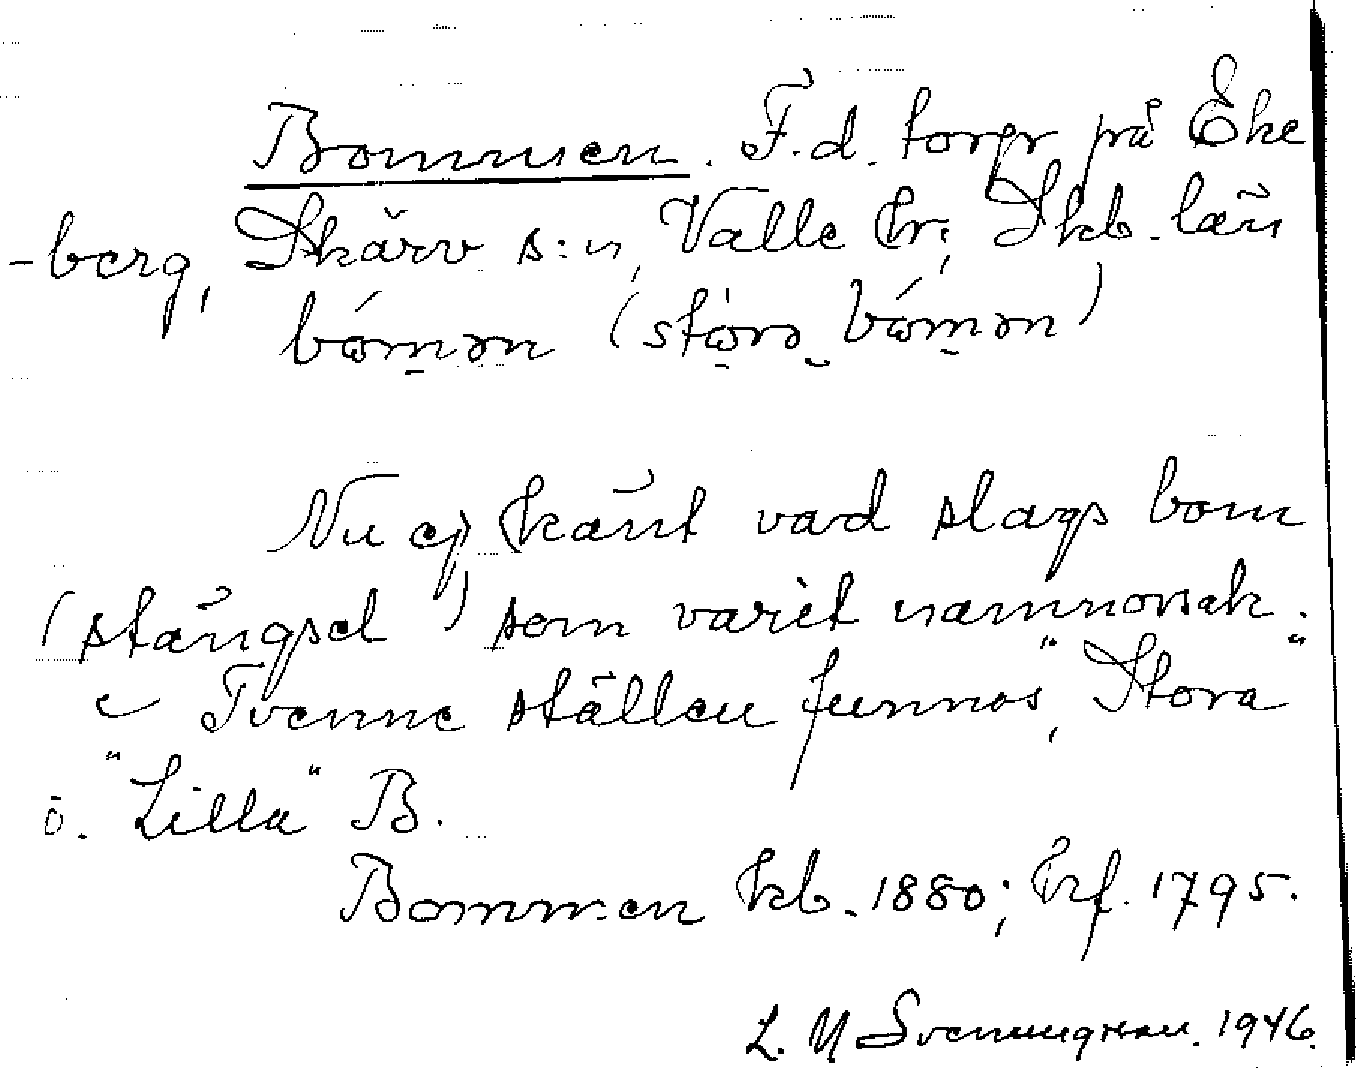 Bommen. F.d. torp på Eke
-berg, Skärv s:n, Valle hr; Skb. län
bómən (stòrə bómən)
Nu ej känt vad slags bom
(stängsel) som varit namnorsak.
Tvenne ställen funnos, "Stora"
o. "Lilla" B.
Bommen kb. 1880; krf. 1795.
L. M Svenungsson. 1946.